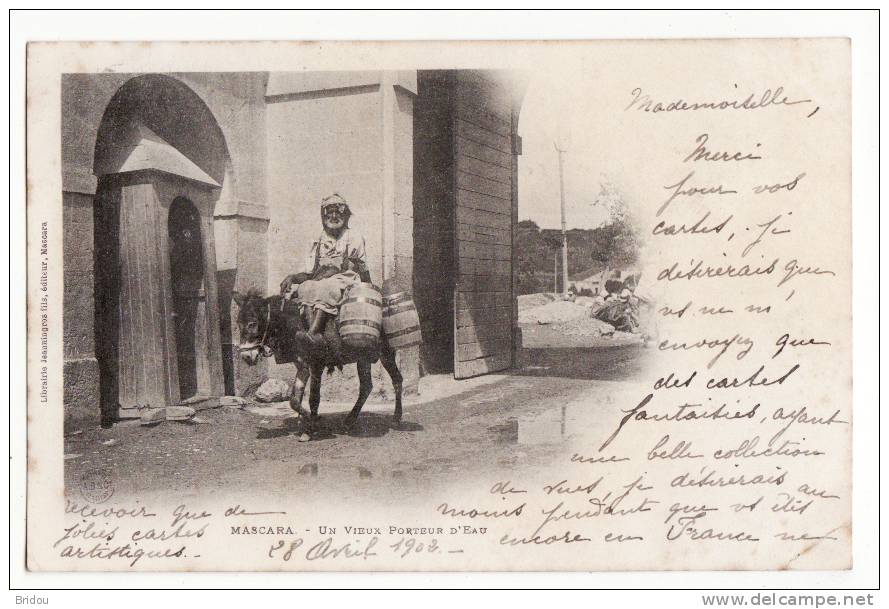 Mademoiselle,
Merci
pour vos
cartes, je
désirerais que
vs ne m'
envoyez que
des cartes
fantaisies, ayant
une belle collection
de vues, je désirerais au
moins pendant que vs êtes
encore en France ne
recevoir que de
jolies cartes
artistiques.
28 Avril 1902
MASCARA. - UN VIEUX PORTEUR D'EAU
Librairie Jeanningros fils, éditeur, Mascara
Bridou
http://www.delcampe.net